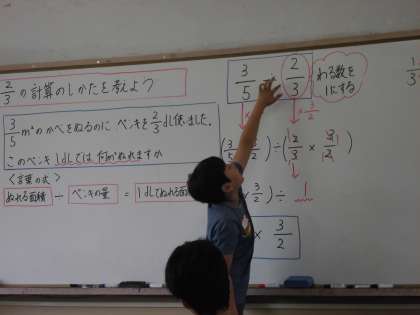 2/3 の計算のしかたを考えよう
3/5 m²のかべをぬるのに ペンキを 2/3 dL使いました。
このペンキ1dLでは 何m²ぬれますか
〈言葉の式〉
ぬれる面積 ÷ ペンキの量 = 1dLでぬれる面
3/5 ÷ 2/3
わる数を
1にする
× 3/2
(3/5 3/2) ÷ (2/3 × 3/2)
× 3/2) ÷ 1
× 3/2
1/3